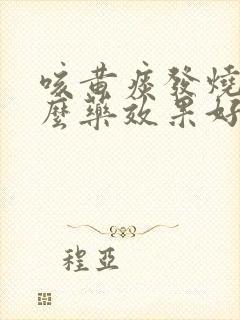 咳黄痰發燒
麼藥效果好
程亞